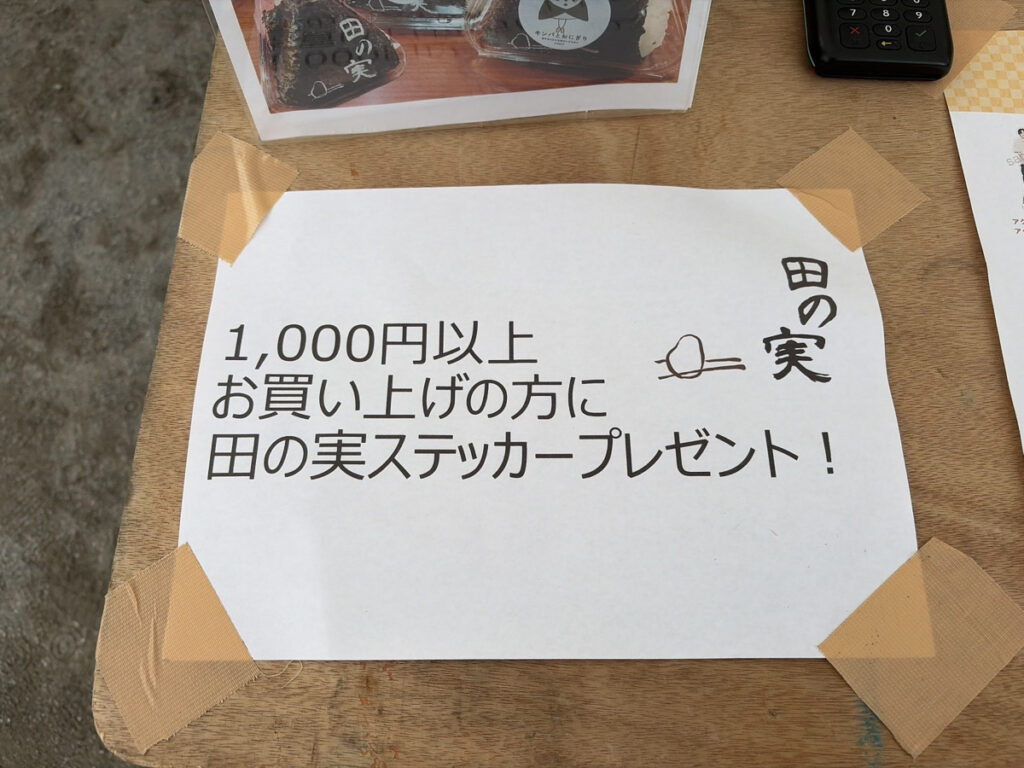 田の実
キンパとおにぎり
7 8 9
田の実
1,000円以上
お買い上げの方に
田の実ステッカープレゼント！